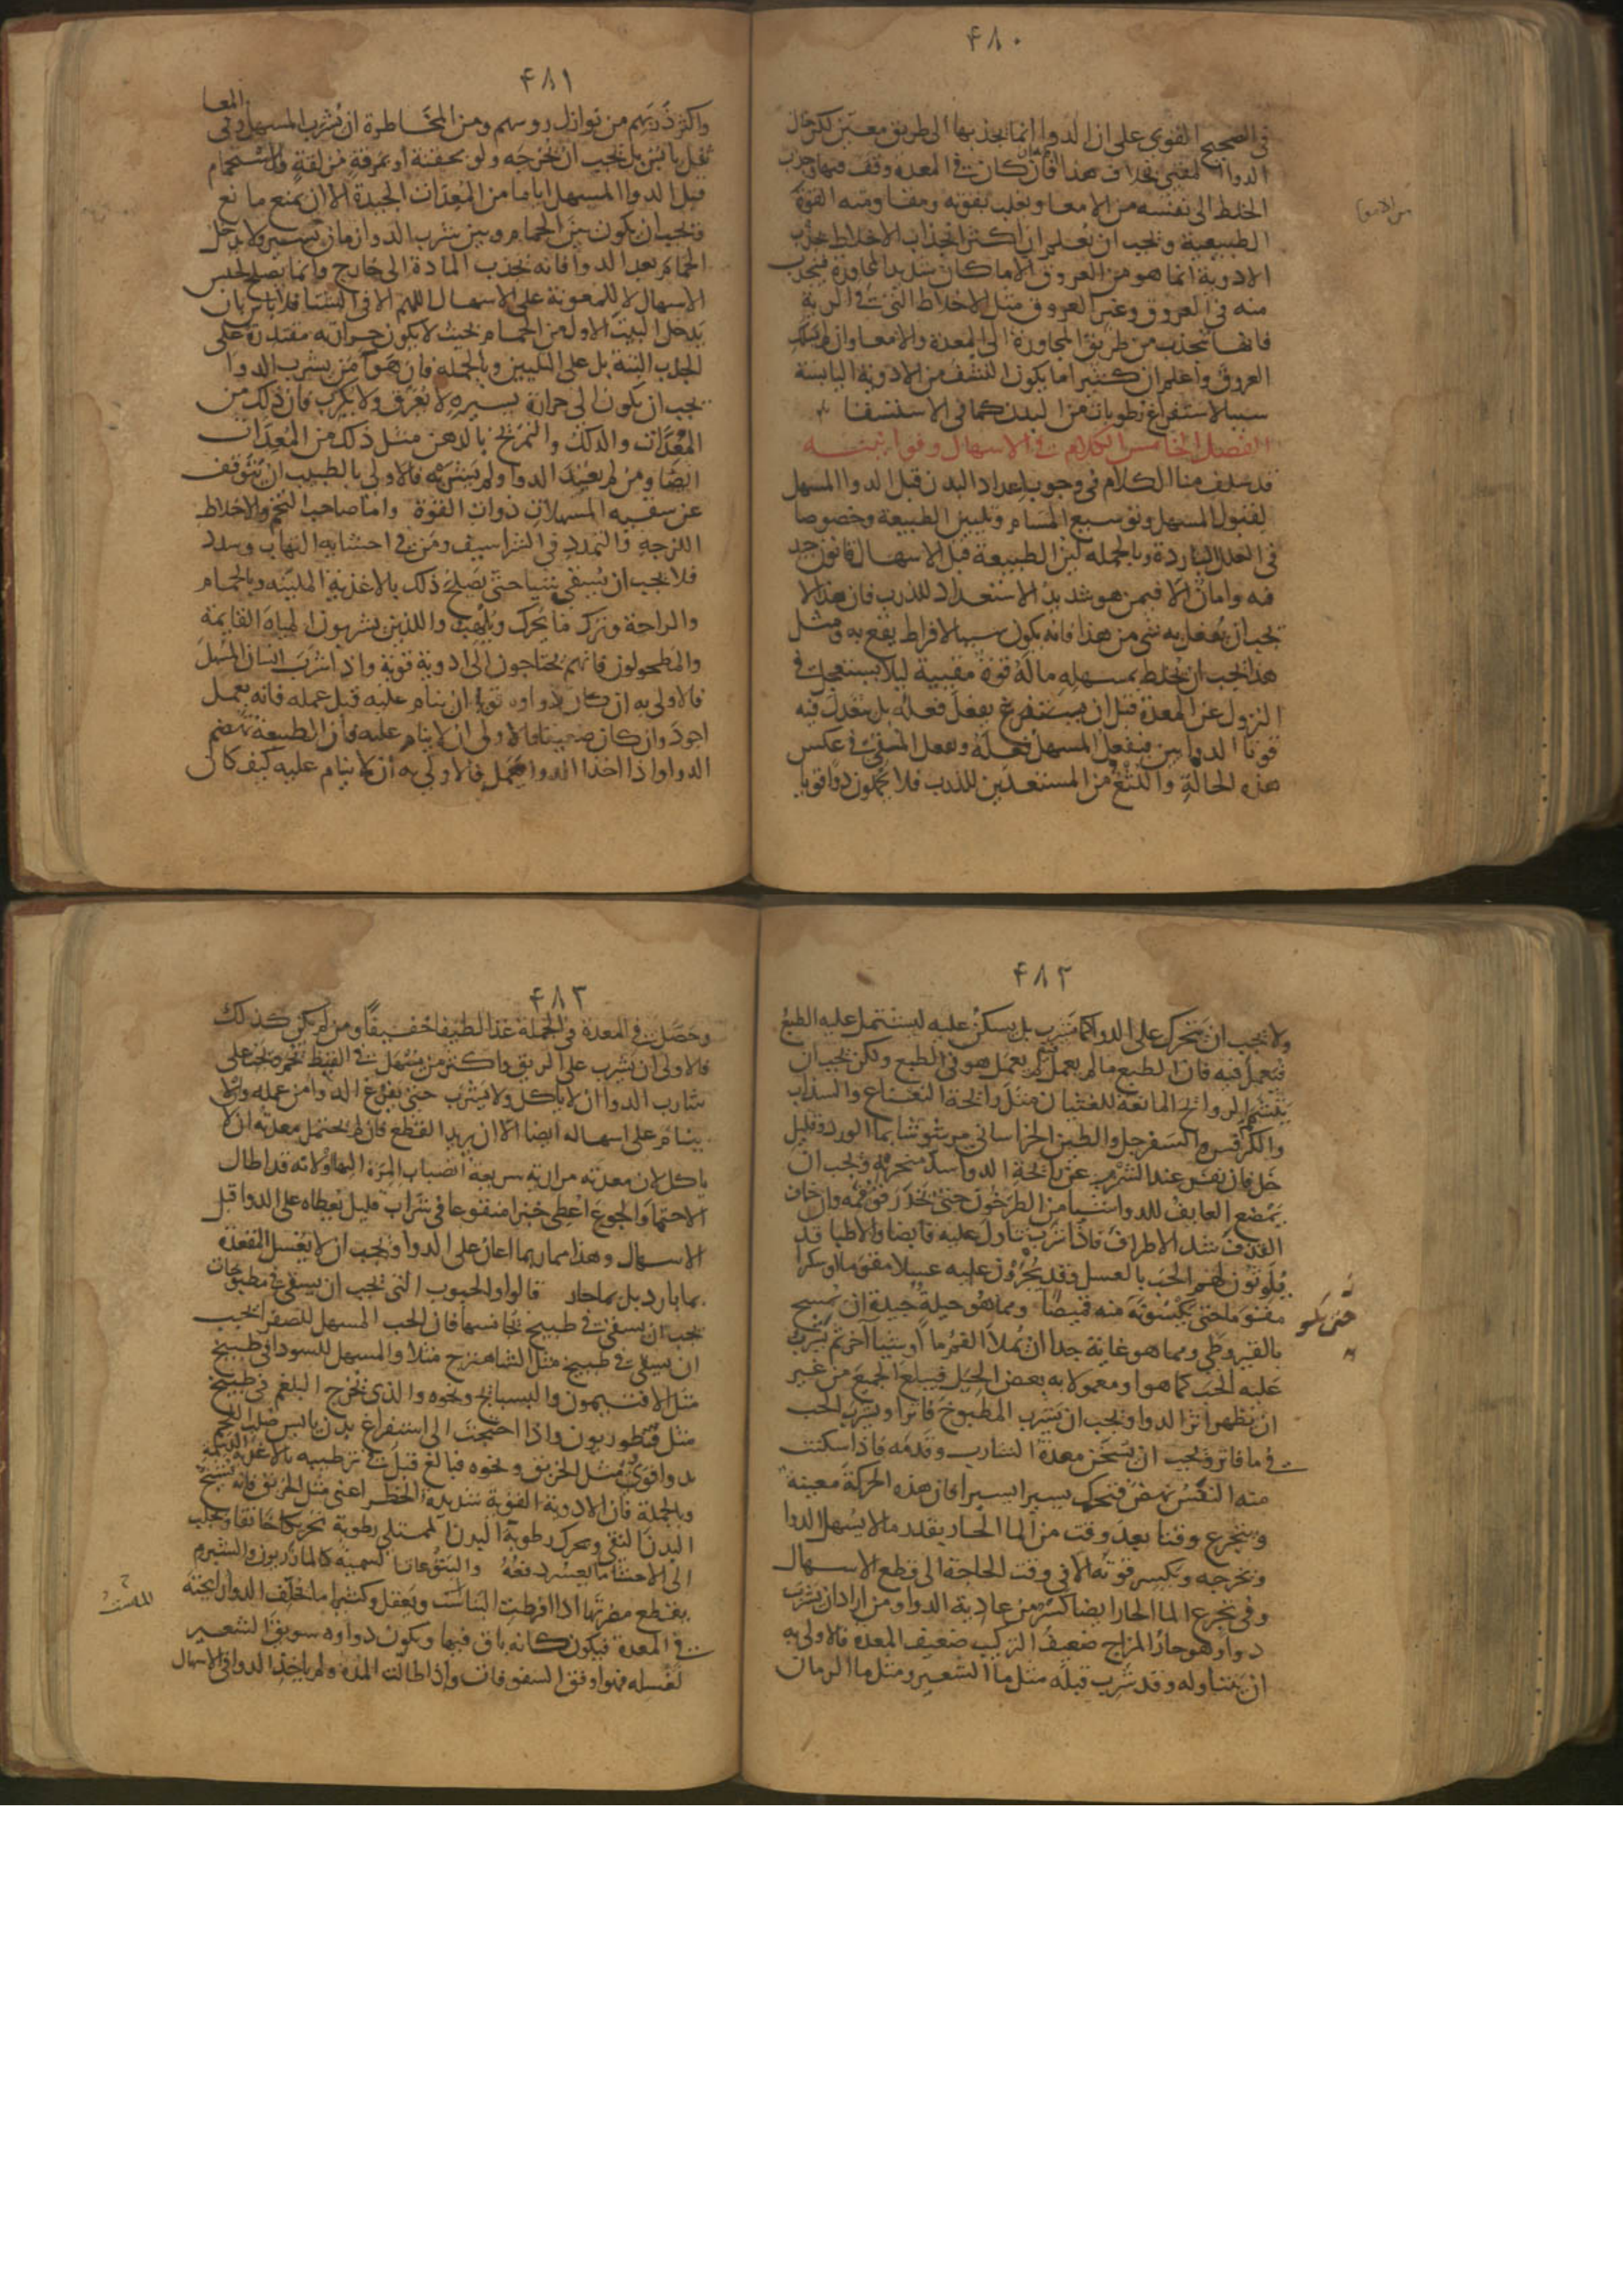 ۴۸۰
في الصحيح القوي على ان الدوا انما يجذبها الى طريق معين لكن حال
الدوا المقيي بخلاف هذا فانه ان كان في المعدة وقف فيها وجذب
الخلط الى نفسه من الامعا ويغلب بقوته ومقاومته القوة
الطبيعية ويجب ان يعلم ان اكثر انجذاب الاخلاط بجذب
الادوية انما هو من العروق الا ما كان شديد المجاورة فيجذب
منه في العروق وغير العروق مثل الاخلاط التي في الرية
فانها تنجذب من طريق المجاورة الى المعدة والامعا وان لم تسلك
العروق واعلم ان كثيرا ما يكون النشف من الادوية اليابسة
سببا لاستفراغ رطوبات من البدن كما في الاستسقا
الفصل الخامس الكلام في الاسهال وقوانينه
قد سلف منا الكلام في وجوب اعداد البدن قبل الدوا المسهل
لقبول المسهل وتوسيع المسام وتليين الطبيعة وخصوصا
في العلل الباردة وبالجملة لين الطبيعة قبل الاسهال قانون جيد
فيه وامان الا فيمن هو شديد الاستعداد للذرب فان هذا لا
يجب ان يفعل به شي من هذا فانه يكون سببا لافراط يقع به ومثل
هذا يجب ان يخلط بمسهله ما له قوة مقيية ليلا يستعجل في
النزول عن المعدة قبل ان يستفرغ بفعل فعله بل يتعدل فيه
قوتا الدواين فيفعل المسهل فعله وفعل المقيي في عكس
هذه الحالة واللثغ من المستعدين للذرب فلا يحملون دوا قويا
۴۸۱
واكثر ذربهم من نوازل روسهم ومن المخاطرة ان يشرب المسهل وفي المعا
ثفل يابس بل يجب ان يخرجه ولو بحقنة او بمرقة مزلقة والاستحمام
قبل الدوا المسهل اياما من المعدات الجيدة الا ان يمنع مانع
ويجب ان يكون بين الحمام وبين شرب الدوا زمان يسير ولا يدخل
الحمام بعد الدوا فانه يجذب المادة الى خارج وانما يصلح لحبس
الاسهال لا للمعونة على الاسهال اللهم الا في الشتا فلا باس بان
يدخل البيت الاول من الحمام بحيث لا يكون حرارته مقتدرة على
الجذب البتة بل على التليين وبالجملة فان هوا من يشرب الدوا
يجب ان يكون الى حرارة يسيره لا يعرق ولا يكرب فان ذلك من
المعدات والدلك والتمريخ بالدهن مثل ذلك من المعدات
ايضا ومن لم يعتد الدوا ولم يشربه فالاولى بالطبيب ان يتوقف
عن سقيه المسهلات ذوات القوة واما صاحب التخم والاخلاط
اللزجة والتمدد في الشراسيف ومن في احشايه التهاب وسدد
فلا يجب ان يسقى شيا حتى يصلح ذلك بالاغذية الملينه وبالحمام
والراحة وترك ما يحرك ويلهب واللذين يشربون المياه القايمة
والمطحولون فانهم يحتاجون الى ادوية قوية واذا شرب انسان المسهل
فالاولى به ان كان دواوه قويا ان ينام عليه قبل عمله فانه يعمل
اجود وان كان ضعيفا فالاولى ان لا ينام عليه فان الطبيعة تهضم
الدوا واذا اخذ الدوا يعمل فالاولى به ان لا ينام عليه كيف كان
۴۸۲
ولا يجب ان يتحرك على الدوا كما شرب بل يسكن عليه ليشتمل عليه الطبع
فيعمل فيه فان الطبع ما لم يعمل فيه لم يعمل هو في الطبع ولكن يجب ان
يتشمم الروايح المانعة للغثيان مثل رائحة النعناع والسذاب
والكرفس والسفرجل والطين الخراساني مرشوشا بما الورد وقليل
خل فان نفر عند الشرب عن رائحة الدوا سد منخريه ويجب ان
يمضغ العايف للدوا شيا من الطرخون حتى يخدر قوة فمه وان خاف
القذف شد الاطراف فاذا شرب تناول عليه قابضا والاطبا قد
يلوثون لهم الحب بالعسل وقد يجرون عليه عسلا مقوما او سكرا
مقوما حتى يكسونه منه قميصا ومما هو حيلة جيدة ان يمسح
بالقيروطي ومما هو غاية جدا ان يملا الفم ما او شيا آخر ثم يشرب
عليه الحب كما هو او معمولا به بعض الحيل فيبلع الجميع من غير
ان يظهر اثر الدوا ويجب ان يشرب المطبوخ فاترا ويشرب الحب
في ما فاتر ويجب ان يسخن معدة الشارب وقدمه فاذا سكنت
منه النفس نهض فتحرك يسيرا يسيرا فان هذه الحركة معينة
ويتجرع وقتا بعد وقت من الما الحار بقدر ما لا يسهل الدوا
ويخرجه ويكسر قوته الا في وقت الحاجة الى قطع الاسهال
وفي تجرع الما الحار ايضا كسر من عادية الدوا ومن اراد ان يشرب
دوا وهو حار المزاج ضعيف التركيب ضعيف المعدة فالاولى به
ان يتناوله وقد شرب قبله مثل ما الشعير ومثل ما الرمان
۴۸۳
وحصل في المعدة في الجملة غذا لطيفا خفيفا ومن لم يكن كذلك
فالاولى ان يشرب على الريق واكثر من يسهل في القيظ يحم ويجب على
شارب الدوا ان لا ياكل ولا يشرب حتى يفرغ الدوا من عمله وان لا
ينام على اسهاله ايضا الا ان يريد القطع فان لم يحتمل معدته ان لا
ياكل لان معدته مرارية سريعة انصباب المرة اليها او لانه قد اطال
الاحتما والجوع اعطي خبزا منقوعا في شراب قليل يعطاه على الدوا قبل
الاسهال وهذا مما ربما اعان على الدوا ويجب ان لا يغسل المقعدة
بما بارد بل بما حار قالوا والحبوب التي يجب ان يسقى في مطبوخات
يجب ان يسقى في طبيخ يجانسها فان الحب المسهل للصفرا يجب
ان يسقى في طبيخ مثل الشاهترج مثلا والمسهل للسودا في طبيخ
مثل الافتيمون والبسبايج ونحوه والذي يخرج البلغم في طبيخ
مثل قنطوريون واذا احتجت الى استفراغ بدن يابس صلب اللحم
بدوا قوي مثل الخربق ونحوه فبالغ قبل في ترطيبه بالاغذية الدسمة
وبالجملة فان الادوية القوية شديدة الخطر اعني مثل الخربق فانه يشنج
البدن النقي ويحرك رطوبة البدن الممتلي رطوبة تحريكا خانقا ويجلب
الى الاحشا ما يعسر دفعه واليتوعات السمية كالمازريون والشبرم
يقطع مضرتها اذا افرطت الماست ويعقل وكثيرا ما يخلف الدوا رايحته
في المعدة فيكون كانه باق فيها ويكون دواوه سويق الشعير
لغسله فهو اوفق السفوفات واذا طالت المدة ولم ياخذ الدوا في الاسهال